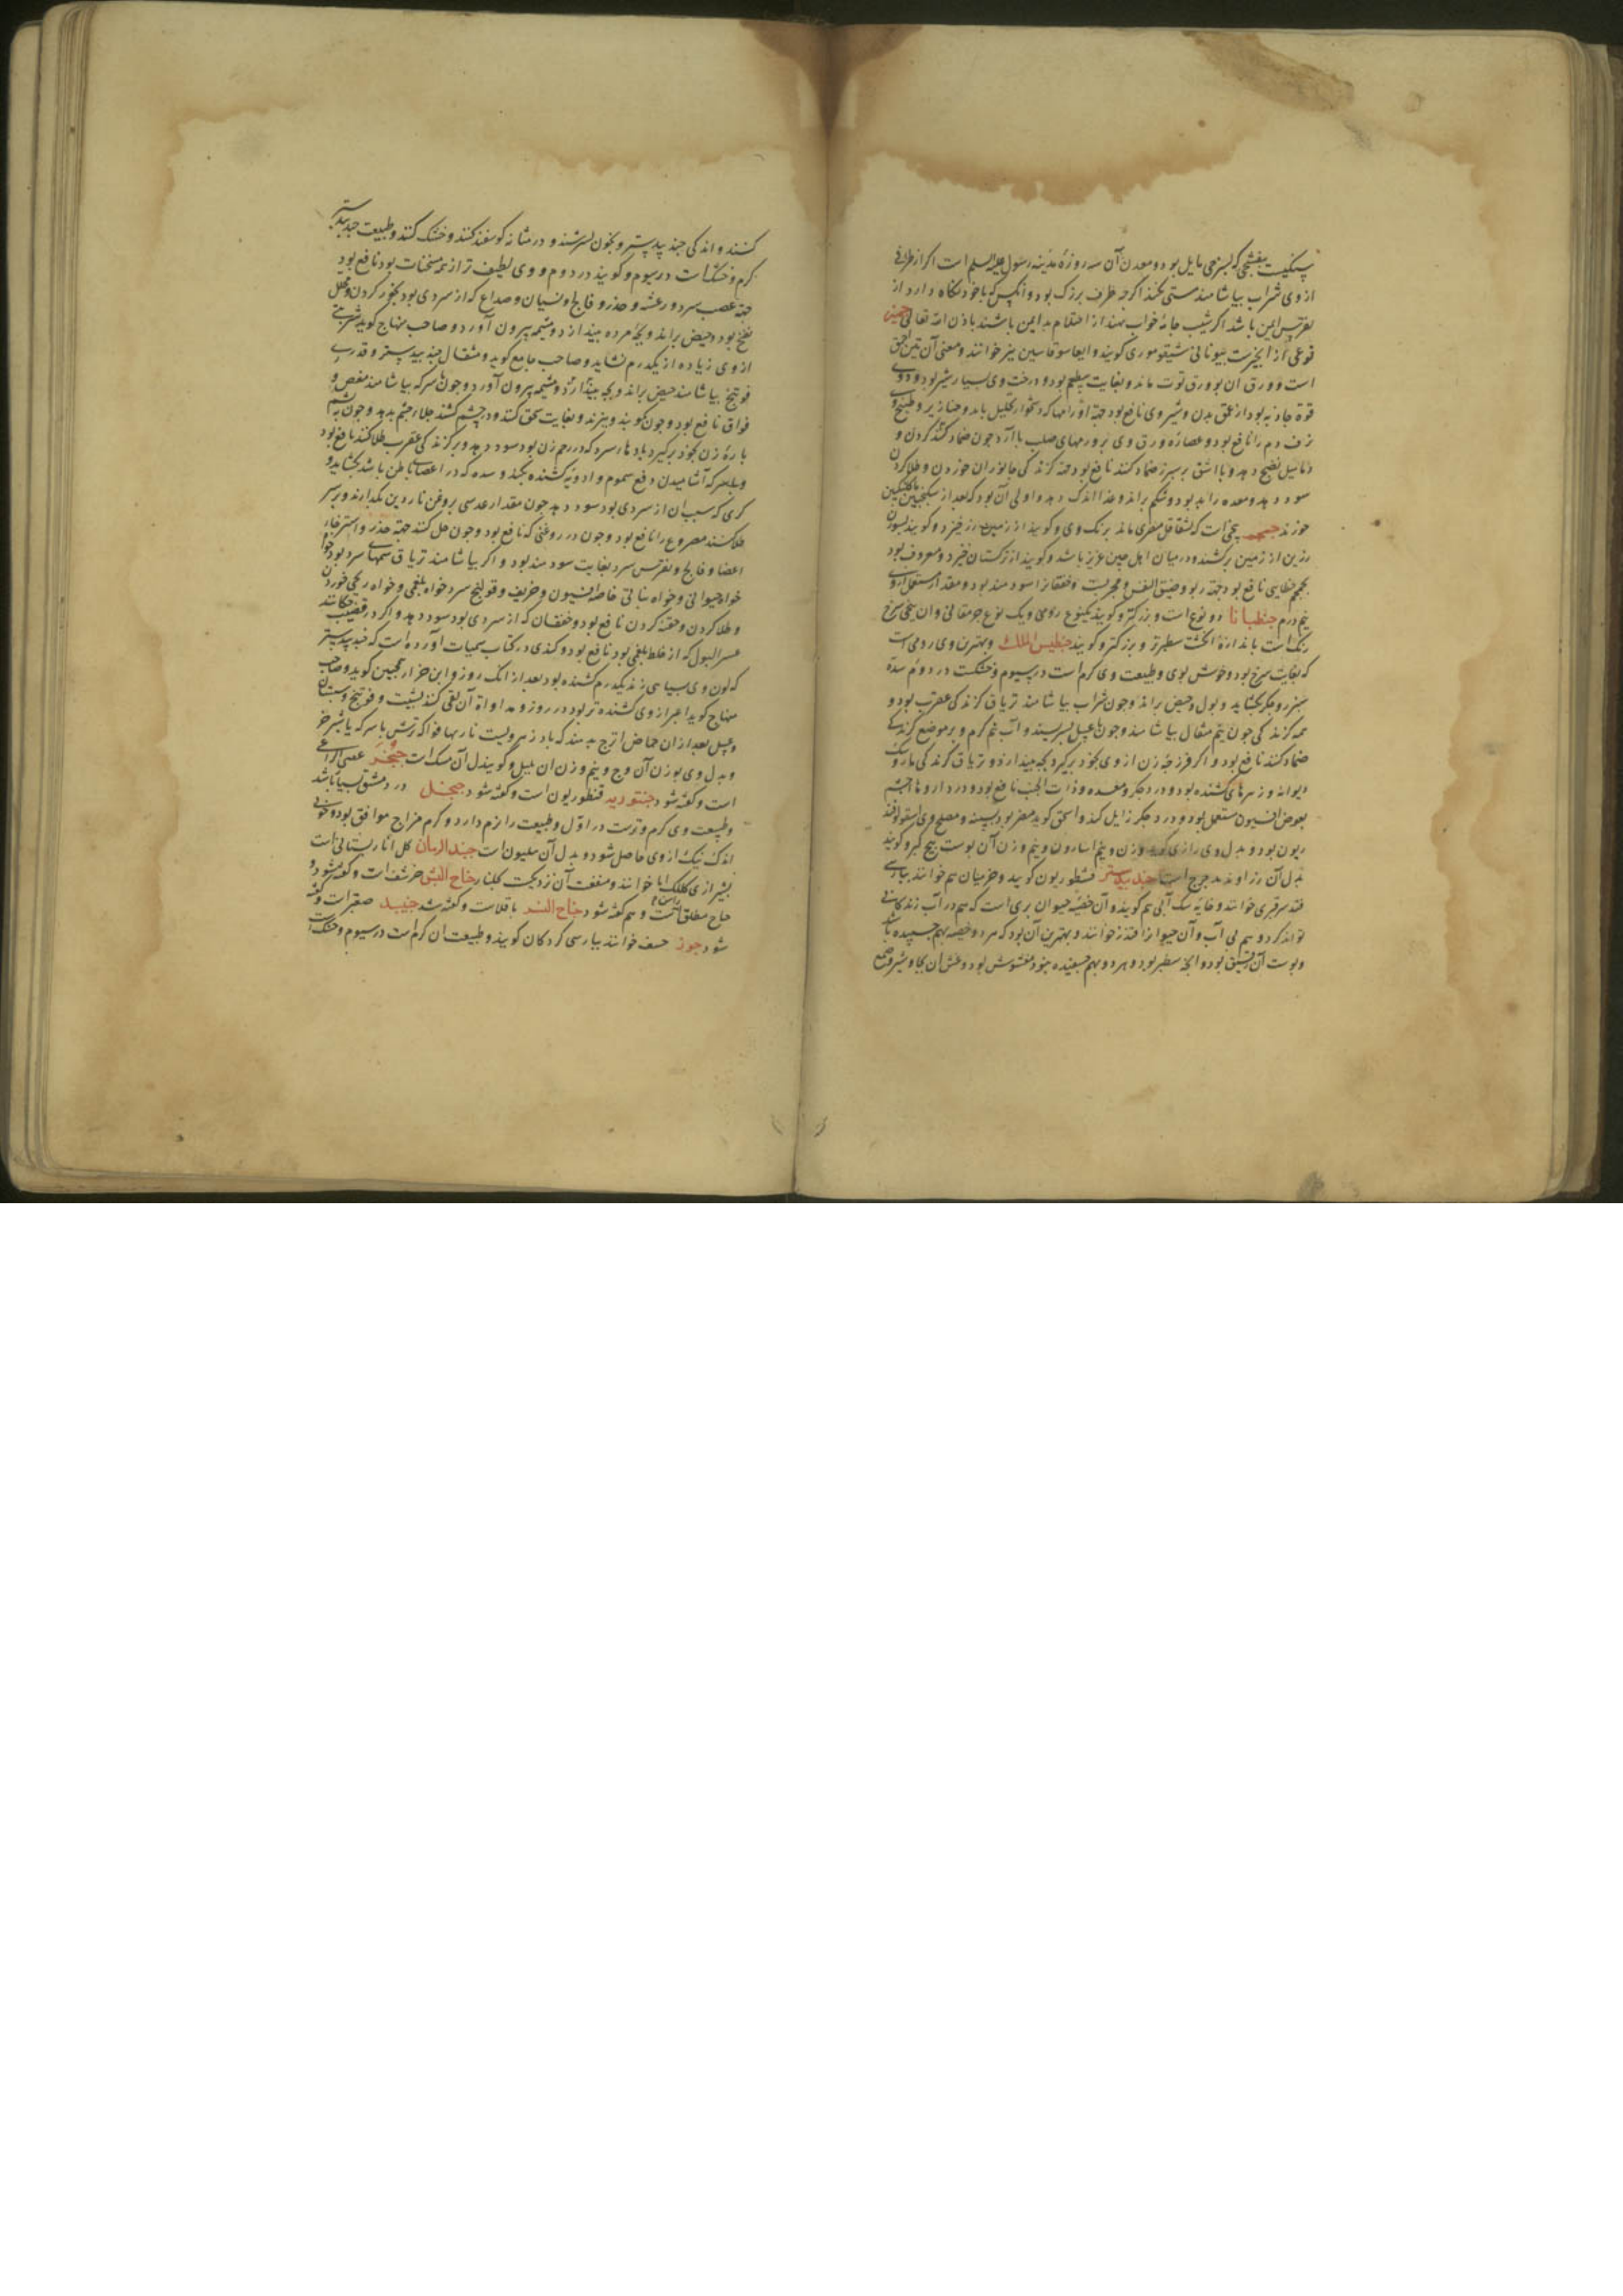 سنگیست بنفشجی که بسرخی مایل بود و معدن آن سه روزۀ مدینه رسول علیه السلم است اکر از ظرافی
از وی شراب بیاشامند مستی نکند اکرچه ظرف بزرک بود و انکس که با خود نکاه دارد از
نقرس ایمن باشد اکر شب جامۀ خواب نهند از احتلام بد ایمن باشند باذن الله تعالی جمیز
نوعی از انجیرست بیونانی سیقوموری کویند و ایضا سوقاسین نیز خوانند و معنی آن تین احمق
است و ورق ان بورق توت ماند و بغایت عظیم بود و درخت وی بسیار شیر بود و در وی
قوة جاذبه بود از عمق بدن و شیر وی نافع بود جهة اورامها که دشخوار تحلیل یابد و خنازیر و طبیخ وی
نزف دم را نافع بود و عصاره ورق وی بر ورمهای صلب با آرد جون ضماد کنند کردن و
دمامیل نضج دهد و با اشق بر سپرز ضماد کنند نافع بود جهة کزندکی جانوران خوردن و طلا کردن
سود دهد و معده را بد بود و شکم براند و غذا اندک دهد و اولی آن بود که بعد از سکنجبین
خورند بیخی است که بشقاقل مصری ماند برنک وی و کویند از زمین خیزد و کویند بسون
رزین از زمین برکشند و در میان اهل چین عزیز باشد و کویند از ترکستان خیزد و معروف بود
بجم خطایی نافع بود جهة ربو و ضیق النفس و مجربست و خفقانرا سودمند بود و مقدار مستعمل از وی
نیم درم جنطیانا دو نوع است و بزرکتر و کویند یکنوع رومی و یک نوع جرمقانی و ان بیخی سرخ
رنک است باندازۀ انکشت سطبرتر و بزرکتر و کویند جنطیس الملک و بهترین وی رومی است
که بغایت سرخ بود و خوش بوی و طبیعت وی کرم است در سیوم و خشکست در دوم سدۀ
سپرز و جکر بکشاید و بول و حیض براند و جون شراب بیاشامند تریاق کزندکی عقرب بود و
همه کزندکی جون نیم مثقال بیاشامند و جون با عسل بسریشند و آب نیم کرم و بر موضع کزندکی
ضماد کنند نافع بود و اکر فرزجه زن از وی بخود برکیرد بچه بیندازد و تریاق کزندکی مار و سک
دیوانه و زهرهای کشنده بود و درد جکر و معده و ذات الجنب نافع بود و در داروها چشم
بعوض افیون مستعمل بود و درد جکر زایل کند و اسحق کوید مضر بود بسپرز و مصلح وی اسقولوقند
ریون بود و بدل وی رازی کوید وزن و نیم اسارون و نیم وزن آن پوست بیخ کبر و کویند
بدل آن زراوند مدحرج است جند بیدستر قسطوریون کویند و خزمیان هم خوانند بپارسی
قندس قیری خوانند و خایۀ سک آبی هم کویند و آن خصیه حیوان بری است که هم در آب زندکانی
تواند کرد و هم بی آب و آن حیوانرا قندز خوانند و بهترین آن بود که هر دو خصیه بهم جسپیده باشد
و پوست آن رقیق بود و انچه سطبر بود و هر دو بهم جسپیده نبود مغشوش بود و غش ان بجاوشیر و صمغ
کنند و اندکی جند بیدستر و بخون بسرشند و در مثانه کوسفند کنند و خشک کنند و طبیعت جند بیدستر
کرم و خشک است در سیوم و کویند در دوم و وی لطیف تر از همه مسخنات بود نافع بود
جهة عصب سرد و رعشه و خدر و فالج و نسیان و صداع که از سردی بود بخور کردن و محلل
نفخ بود و حیض براند و بچۀ مرده بیندازد و مشیمه بیرون آورد و صاحب منهاج کوید شربتی
از وی زیاده از یکدرم نشاید و صاحب جامع کوید دو مثقال جند بیدستر و قدری
فوتنج بیاشامند حیض براند و بچه بیندازد و مشیمه بیرون آورد و جون با سرکه بیاشامند مغص و
فواق نافع بود و جون بکوبند و ببیزند و بغایت سحق کنند و در چشم کشند جلاء چشم بدهد و جون به پشم
بارۀ زن بخود برکیرد بادها سرد که در رحم زن بود سود دهد و بر کزندکی عقرب طلا کنند نافع بود
و با سرکه آشامیدن دفع سموم و ادویه کشنده بکند و سده که در اعصاب باطن باشد بکشاید و
کری که سبب ان از سردی بود سود دهد جون مقدار عدسی بروغن ناردین بکدازند و بر سر
طلا کنند مصروع را نافع بود و جون در روغنی که نافع بود و جون حل کنند جهة خدر و استرخاء
اعضا و فالج و نقرس سرد بغایت سودمند بود و اکر بیاشامند تریاق سمهای سرد بود خواه
خواه حیوانی و خواه نباتی خاصه افیون و خربق و قولنج سرد خواه بلغمی و خواه ریحی خوردن
و طلا کردن و حقنه کردن نافع بود و خفقان که از سردی بود سود دهد و اکر در قضیب چکانند
عسر البول که از خلط بلغمی بود نافع بود و کندی در کتاب سمیات آورده است که جند بیدستر
که لون وی بسیاهی زند یکدرم کشنده بود بعد از انک روز و ابن جزار همچنین کوید و صاحب
منهاج کوید اغبر از وی کشنده تر بود در روز و مداواة آن بقی کند بشبت و فوتنج و بستان
و عسل بعد از ان حماض اترج بدهند که باد زهر ویست تا ربها فواکه ترش با سرکه یا شیر خر
و بدل وی بوزن آن وج و نیم وزن ان فلفل و کویند بدل آن مسک است جنجر عصی الراعی
است و کفته شود جنتورید قنطوریون است و کفته شود جنجل در دمشق بسیار باشد
و طبیعت وی کرم و ترست در اول و طبیعت را نرم دارد و کرم مزاج موافق بود و خونی
اندک نیک از وی حاصل شود و بدل آن هلیون است جند الرمان کل انار بستانی است
بشیرازی کلک انار خوانند و منفعت آن نزدیکست کلنار جناح النسر حرشف است و کفته شود و
جناح مطلق راسن است و هم کفته شود جناح النسر باقلاست و کفته شد جنیبد صفیرات و کفته
شود جوز خسف خوانند بپارسی کردکان کویند و طبیعت ان کرم است در سیوم و خشک است